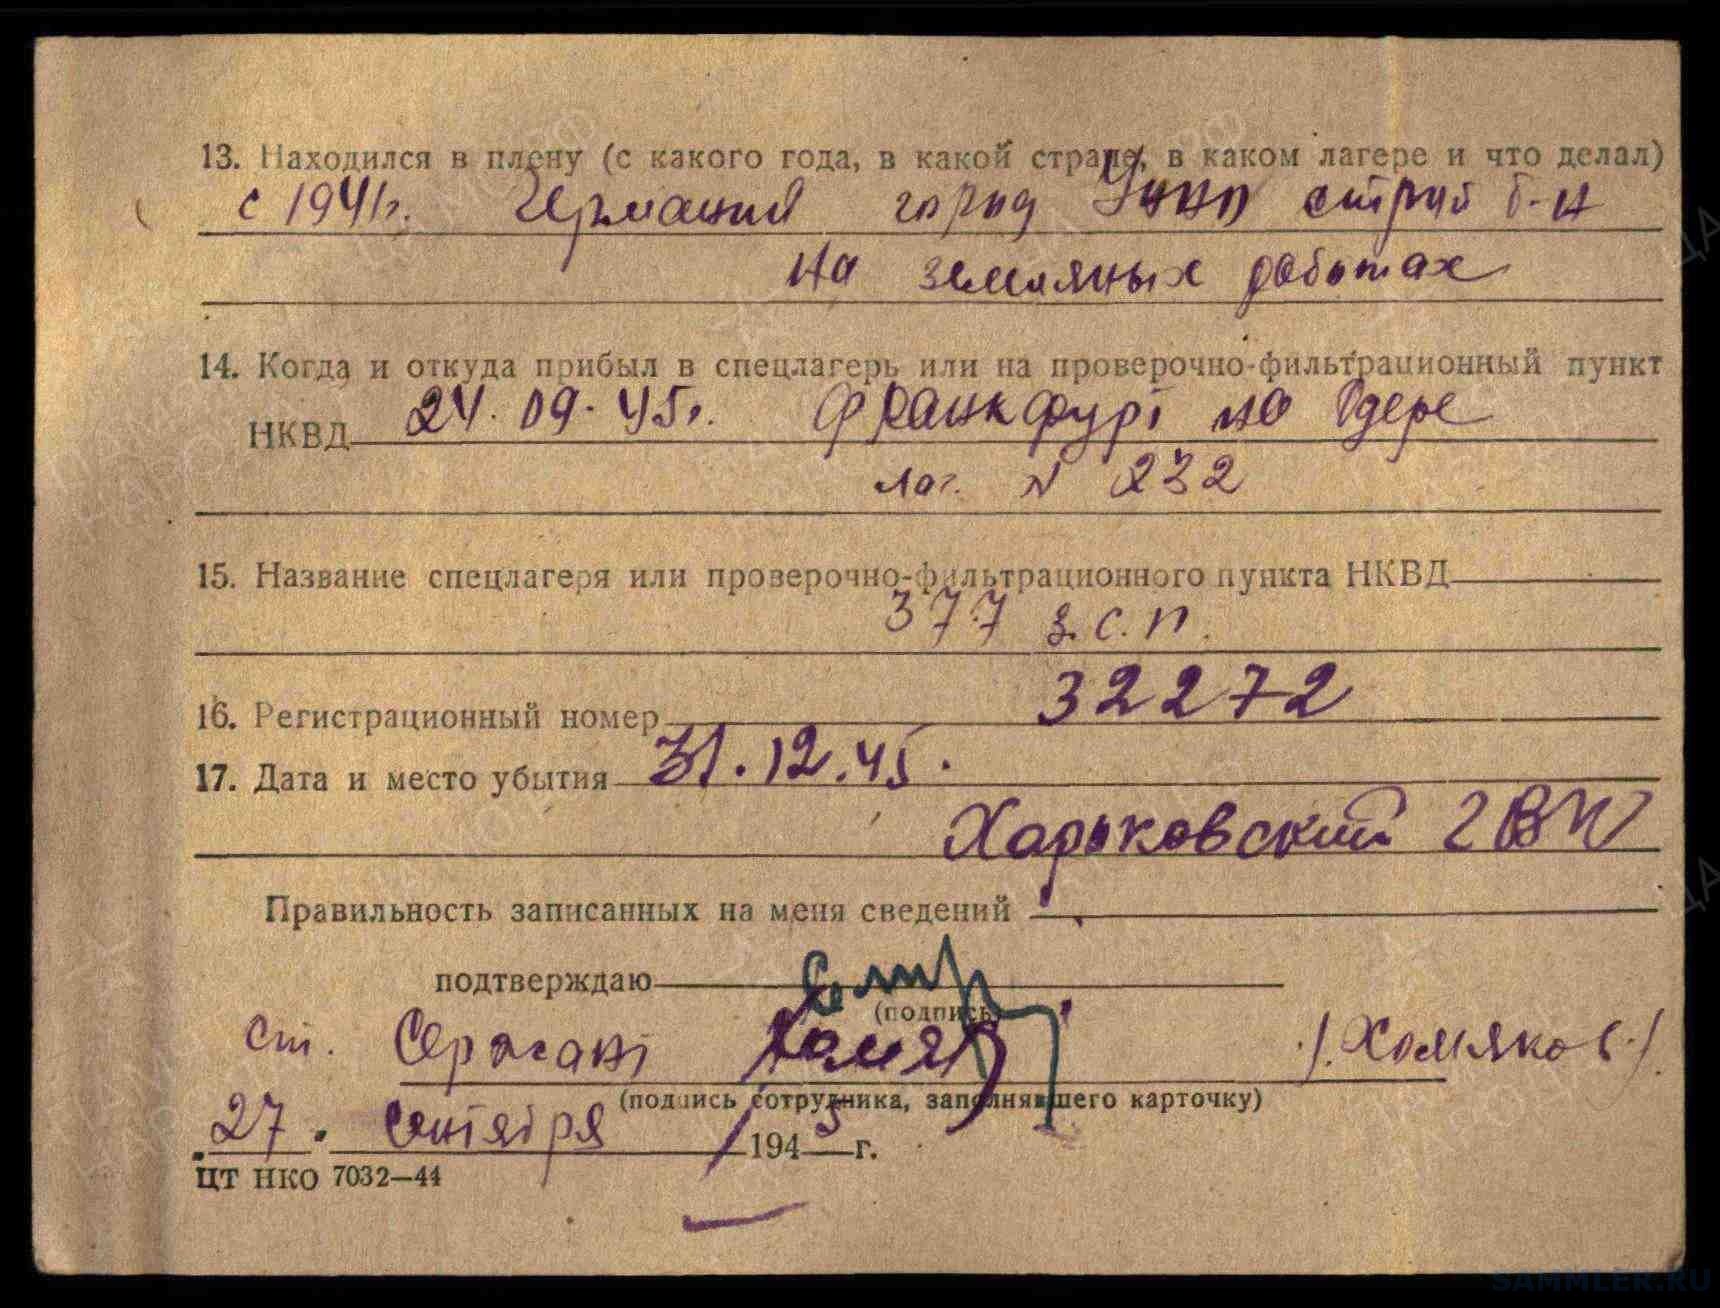 13. Находился в плену (с какого года, в какой стране, в каком лагере и что делал)
с 1941г. Германия город строй б-н
на земляных работах
14. Когда и откуда прибыл в спецлагерь или на проверочно-фильтрационный пункт
НКВД 24.09.45г. Франкфурт на Одере
лаг. N 232
15. Название спецлагеря или проверочно-фильтрационного пункта НКВД
377 з.с.п.
16. Регистрационный номер 32272
17. Дата и место убытия 31.12.45.
Харьковский
Правильность записанных на меня сведений
подтверждаю
(подпись)
ст. Сержант Хомяк /.Хомяков./
(подпись сотрудника, заполнявшего карточку)
27. Сентября 1945 г.
ЦТ НКО 7032—44
SAMMLER.RU